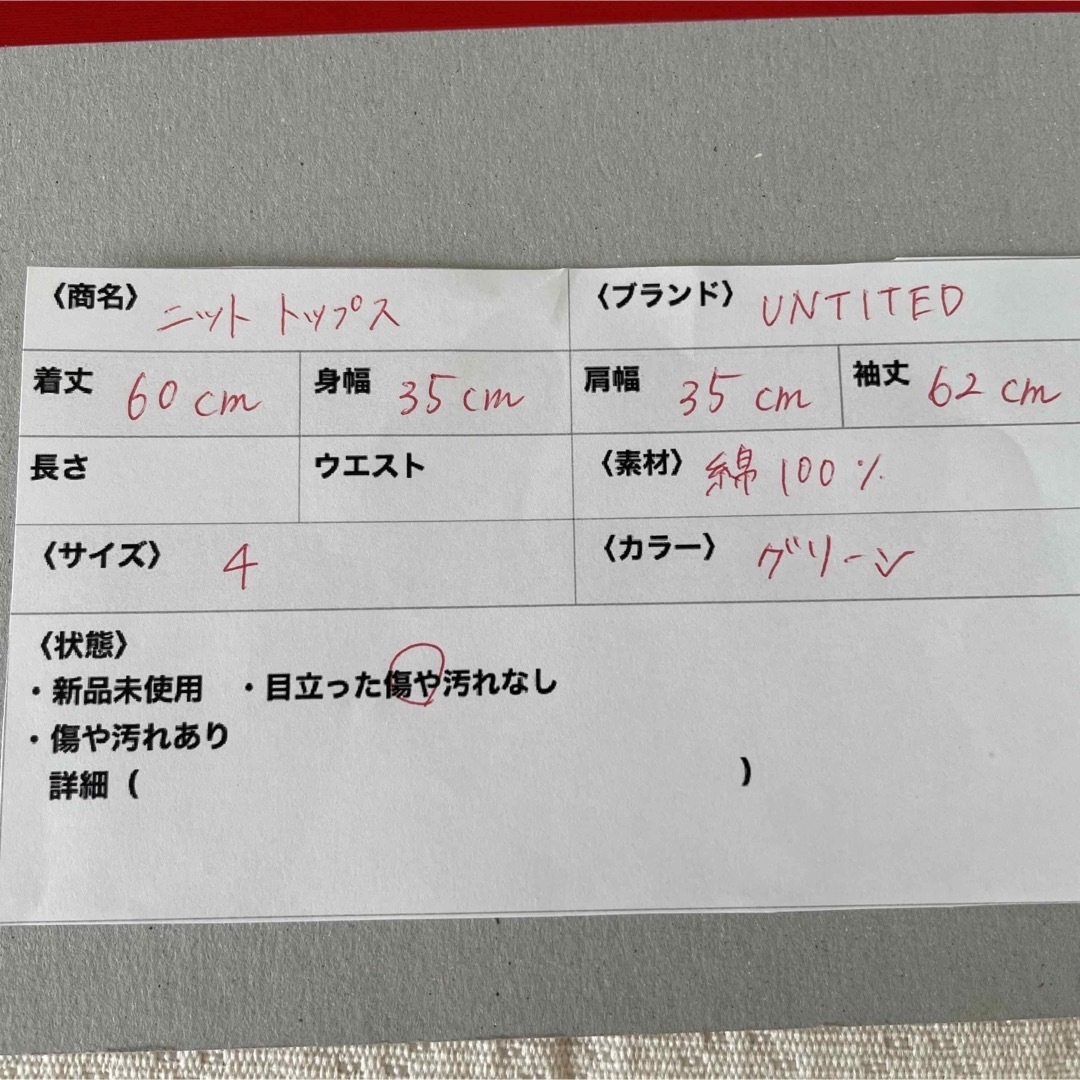 〈商名〉 ニット トップス 〈ブランド〉 UNTITED
着丈 60cm 身幅 35cm 肩幅 35cm 袖丈 62cm
長さ ウエスト 〈素材〉 綿100%
〈サイズ〉 4 〈カラー〉 グリーン
〈状態〉
・新品未使用 ・目立った傷や汚れなし
・傷や汚れあり
詳細( )